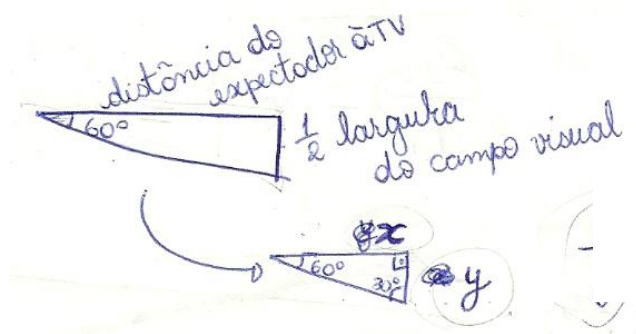 distância do
expectador à TV
60°
1/2 largura
do campo visual
x
60°
30°
y